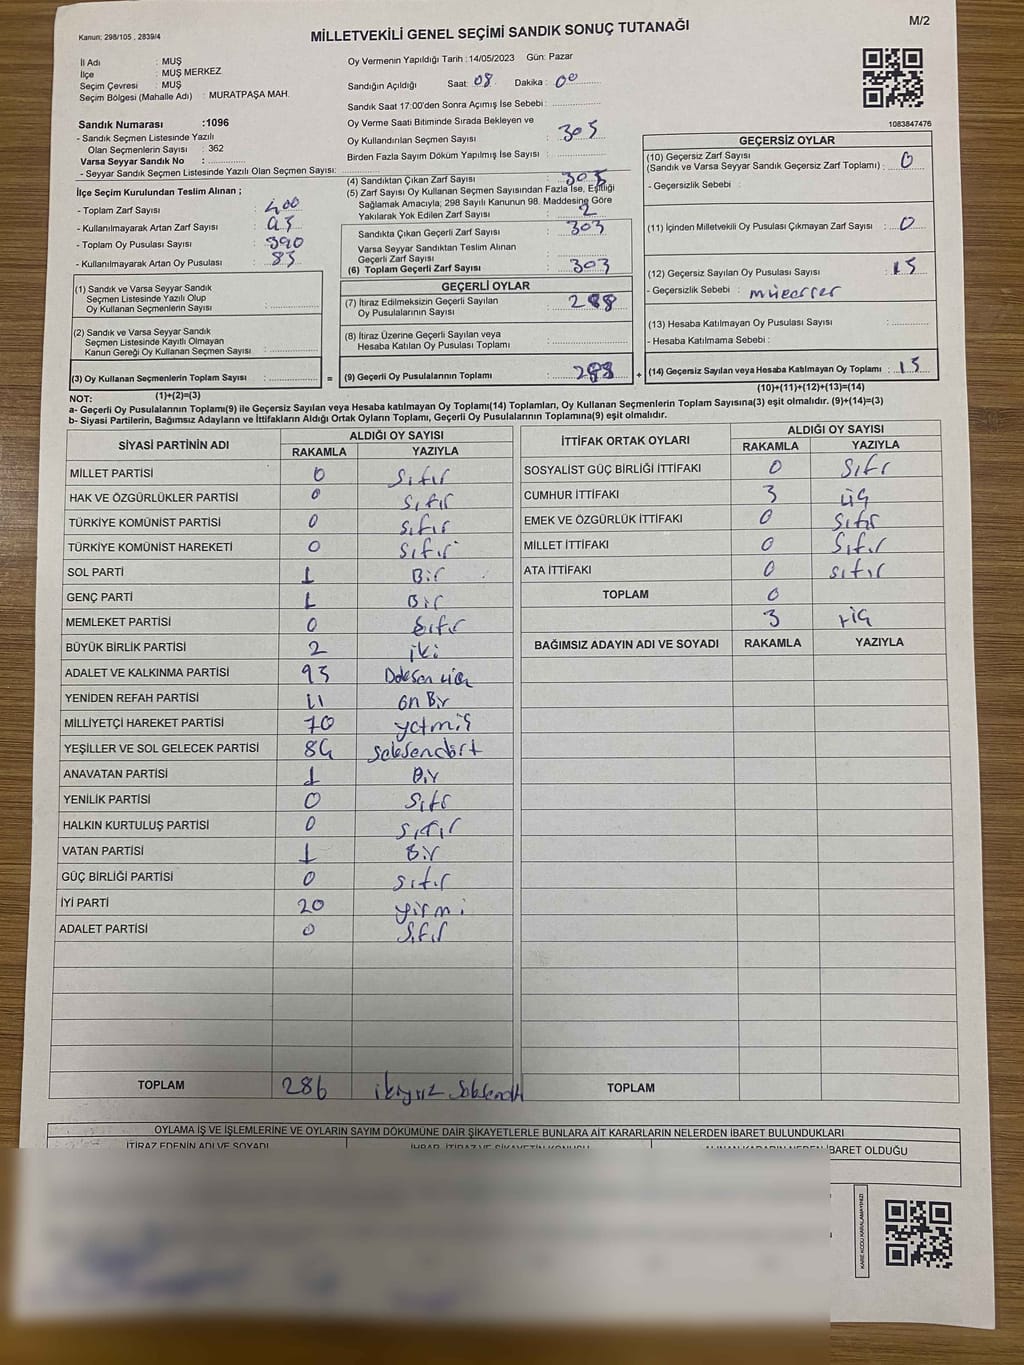 Kanun; 298/105 , 2839/4
MİLLETVEKİLİ GENEL SEÇİMİ SANDIK SONUÇ TUTANAĞI
M/2
İl Adı : MUŞ
İlçe : MUŞ MERKEZ
Seçim Çevresi : MUŞ
Seçim Bölgesi (Mahalle Adı) : MURATPAŞA MAH.
Sandık Numarası :1096
- Sandık Seçmen Listesinde Yazılı
Olan Seçmenlerin Sayısı : 362
Varsa Seyyar Sandık No :
- Seyyar Sandık Seçmen Listesinde Yazılı Olan Seçmen Sayısı:
Oy Vermenin Yapıldığı Tarih :14/05/2023 Gün: Pazar
Sandığın Açıldığı Saat: 08 Dakika : 00
Sandık Saat 17:00'den Sonra Açımış İse Sebebi :
Oy Verme Saati Bitiminde Sırada Bekleyen ve
Oy Kullandırılan Seçmen Sayısı : 305
Birden Fazla Sayım Döküm Yapılmış İse Sayısı :
1083847476
İlçe Seçim Kurulundan Teslim Alınan ;
- Toplam Zarf Sayısı : 400
- Kullanılmayarak Artan Zarf Sayısı : 95
- Toplam Oy Pusulası Sayısı : 390
- Kullanılmayarak Artan Oy Pusulası : 85
(1) Sandık ve Varsa Seyyar Sandık
Seçmen Listesinde Yazılı Olup
Oy Kullanan Seçmenlerin Sayısı :
(2) Sandık ve Varsa Seyyar Sandık
Seçmen Listesinde Kayıtlı Olmayan
Kanun Gereği Oy Kullanan Seçmen Sayısı :
(3) Oy Kullanan Seçmenlerin Toplam Sayısı :
(1)+(2)=(3)
(4) Sandıktan Çıkan Zarf Sayısı : 305
(5) Zarf Sayısı Oy Kullanan Seçmen Sayısından Fazla İse, Eşitliği
Sağlamak Amacıyla; 298 Sayılı Kanunun 98. Maddesine Göre
Yakılarak Yok Edilen Zarf Sayısı : 2
Sandıkta Çıkan Geçerli Zarf Sayısı : 303
Varsa Seyyar Sandıktan Teslim Alınan
Geçerli Zarf Sayısı :
(6) Toplam Geçerli Zarf Sayısı : 303
GEÇERLİ OYLAR
(7) İtiraz Edilmeksizin Geçerli Sayılan
Oy Pusulalarının Sayısı : 288
(8) İtiraz Üzerine Geçerli Sayılan veya
Hesaba Katılan Oy Pusulası Toplamı :
= (9) Geçerli Oy Pusulalarının Toplamı : 288 +
GEÇERSİZ OYLAR
(10) Geçersiz Zarf Sayısı
(Sandık ve Varsa Seyyar Sandık Geçersiz Zarf Toplamı) : 0
- Geçersizlik Sebebi :
(11) İçinden Milletvekili Oy Pusulası Çıkmayan Zarf Sayısı : 0
(12) Geçersiz Sayılan Oy Pusulası Sayısı : 15
- Geçersizlik Sebebi :
(13) Hesaba Katılmayan Oy Pusulası Sayısı :
- Hesaba Katılmama Sebebi :
(14) Geçersiz Sayılan veya Hesaba Katılmayan Oy Toplamı : 15
(10)+(11)+(12)+(13)=(14)
NOT:
a- Geçerli Oy Pusulalarının Toplamı(9) ile Geçersiz Sayılan veya Hesaba katılmayan Oy Toplamı(14) Toplamları, Oy Kullanan Seçmenlerin Toplam Sayısına(3) eşit olmalıdır. (9)+(14)=(3)
b- Siyasi Partilerin, Bağımsız Adayların ve İttifakların Aldığı Ortak Oyların Toplamı, Geçerli Oy Pusulalarının Toplamına(9) eşit olmalıdır.
SİYASİ PARTİNİN ADI ALDIĞI OY SAYISI
RAKAMLA YAZIYLA
MİLLET PARTİSİ 0 Sıfır
HAK VE ÖZGÜRLÜKLER PARTİSİ 0 Sıfır
TÜRKİYE KOMÜNİST PARTİSİ 0 Sıfır
TÜRKİYE KOMÜNİST HAREKETİ 0 Sıfır
SOL PARTİ 1 Bir
GENÇ PARTİ 1 Bir
MEMLEKET PARTİSİ 0 Sıfır
BÜYÜK BİRLİK PARTİSİ 2 iki
ADALET VE KALKINMA PARTİSİ 93 Doksan üç
YENİDEN REFAH PARTİSİ 11 On Bir
MİLLİYETÇİ HAREKET PARTİSİ 70 yetmiş
YEŞİLLER VE SOL GELECEK PARTİSİ 84 Seksendört
ANAVATAN PARTİSİ 1 Bir
YENİLİK PARTİSİ 0 Sıfır
HALKIN KURTULUŞ PARTİSİ 0 Sıfır
VATAN PARTİSİ 1 Bir
GÜÇ BİRLİĞİ PARTİSİ 0 Sıfır
İYİ PARTİ 20 yirmi
ADALET PARTİSİ 0 Sıfır
TOPLAM 286
İTTİFAK ORTAK OYLARI ALDIĞI OY SAYISI
RAKAMLA YAZIYLA
SOSYALİST GÜÇ BİRLİĞİ İTTİFAKI 0 Sıfır
CUMHUR İTTİFAKI 3 üç
EMEK VE ÖZGÜRLÜK İTTİFAKI 0 Sıfır
MİLLET İTTİFAKI 0 Sıfır
ATA İTTİFAKI 0 sıfır
TOPLAM 0
3 üç
BAĞIMSIZ ADAYIN ADI VE SOYADI RAKAMLA YAZIYLA
TOPLAM
OYLAMA İŞ VE İŞLEMLERİNE VE OYLARIN SAYIM DÖKÜMÜNE DAİR ŞİKAYETLERLE BUNLARA AİT KARARLARIN NELERDEN İBARET BULUNDUKLARI
İTİRAZ EDENİN ADI VE SOYADI
İHBAR, İTİRAZ VE ŞİKAYETİN KONUSU
ALINAN KARARIN NEDEN İBARET OLDUĞU
KARE KODU KARALAMAYINIZ!